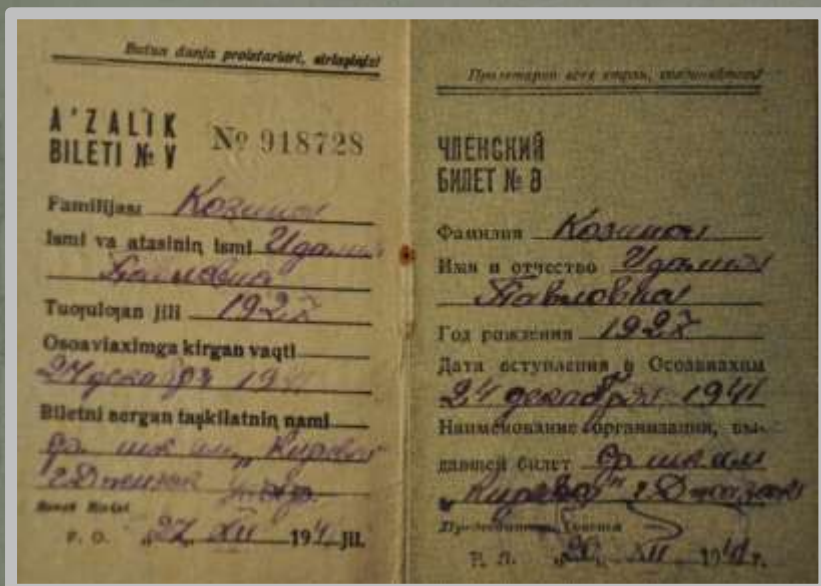 Butun dunja proletarləri, birləşiŋiz!
A'ZALIK
BILETI № V
№ 918728
Familijasi Козина
Ismi va atasinin ismi
Павловна
Tuƣulƣan jili 1927
Osoaviaximga kirgan vaqti
24 декабря 19
Biletni bergan taşkilatnin nami
ср. шк им. „Кирова"
г Джизак
P. O. „27" XII 194 jil.
Пролетарии всех стран, соединяйтесь!
ЧЛЕНСКИЙ
БИЛЕТ № В
Фамилия Козина
Имя и отчество
Павловна
Год рождения 1927
Дата вступления в Осоавиахим
24 декабря 1941
Наименование организации, вы-
давшей билет ср шк им
„Кирова" г Джизак
XII 1941 г.